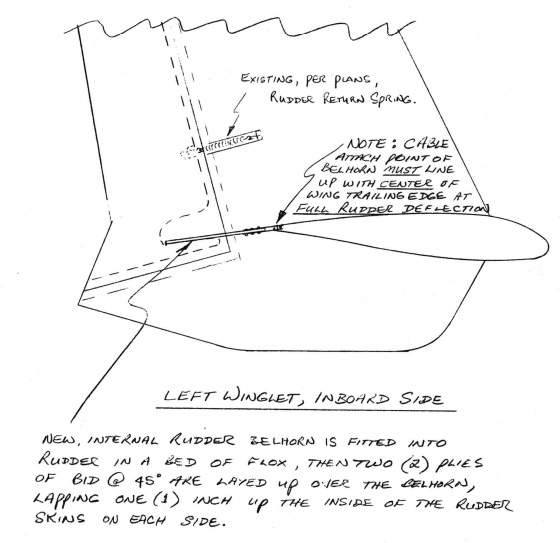 EXISTING, PER PLANS,
RUDDER RETURN SPRING.
NOTE: CABLE
ATTACH POINT OF
BELHORN MUST LINE
UP WITH CENTER OF
WING TRAILING EDGE AT
FULL RUDDER DEFLECTION
LEFT WINGLET, INBOARD SIDE
NEW, INTERNAL RUDDER BELHORN IS FITTED INTO
RUDDER IN A BED OF FLOX, THEN TWO (2) PLIES
OF BID @ 45° ARE LAYED UP OVER THE BELHORN,
LAPPING ONE (1) INCH UP THE INSIDE OF THE RUDDER
SKINS ON EACH SIDE.